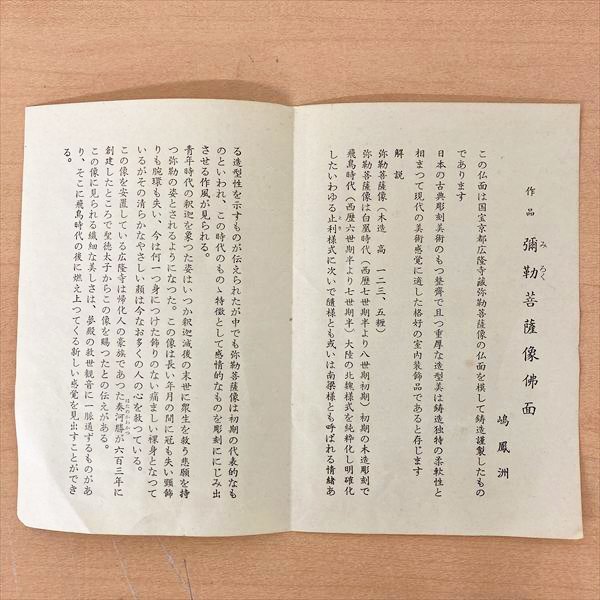 作品 彌勒菩薩像佛面
みろく
嶋鳳洲
この仏面は国宝京都広隆寺蔵弥勒菩薩像の仏面を模して鋳造謹製したもの
であります
日本の古典彫刻美術のもつ整齊で且つ重厚な造型美は鋳造独特の柔軟性と
相まつて現代の美術感覚に適した格好の室内装飾品であると存じます
解説
弥勒菩薩像(木造 高 一二三、五糎)
弥勒菩薩像は白鳳時代(西暦七世期半より八世期初期)初期の木造彫刻で
飛鳥時代(西暦六世期半より七世期半)大陸の北魏様式を純粋化し明確化
したいわゆる止利様式に次いで隨様とも或いは南梁様とも呼ばれる情緒あ
とり
る造型性を示すものが伝えられたが中でも弥勒菩薩像は初期の代表的なも
のといわれ、この時代のもつ特徴として感情的なものを彫刻ににじみ出
させる作風が見られる。
青年時代の釈迦を象つた姿はいつか釈迦滅後の末世に衆生を救う悲願を持
つ弥勒の姿とされるようになつた。この像は長い年月の間に冠も失い頸飾
りも腕環も失い、今は何一つ身につけた飾りのない痛ましい裸身となつて
いるがその清らかなやさしい顔は今なお多くの人の心を救つている。
この像を安置している広隆寺は帰化人の豪族であつた秦河勝が六百三年に
はたのかわかつ
創建したところで聖徳太子からこの像を賜つたとの伝えがある。
この像に見られる繊細な美しさは、夢殿の救世観音に一脈通ずるものがあ
り、そこに飛鳥時代の後に燃え上つてくる新しい感覚を見出すことができ
る。